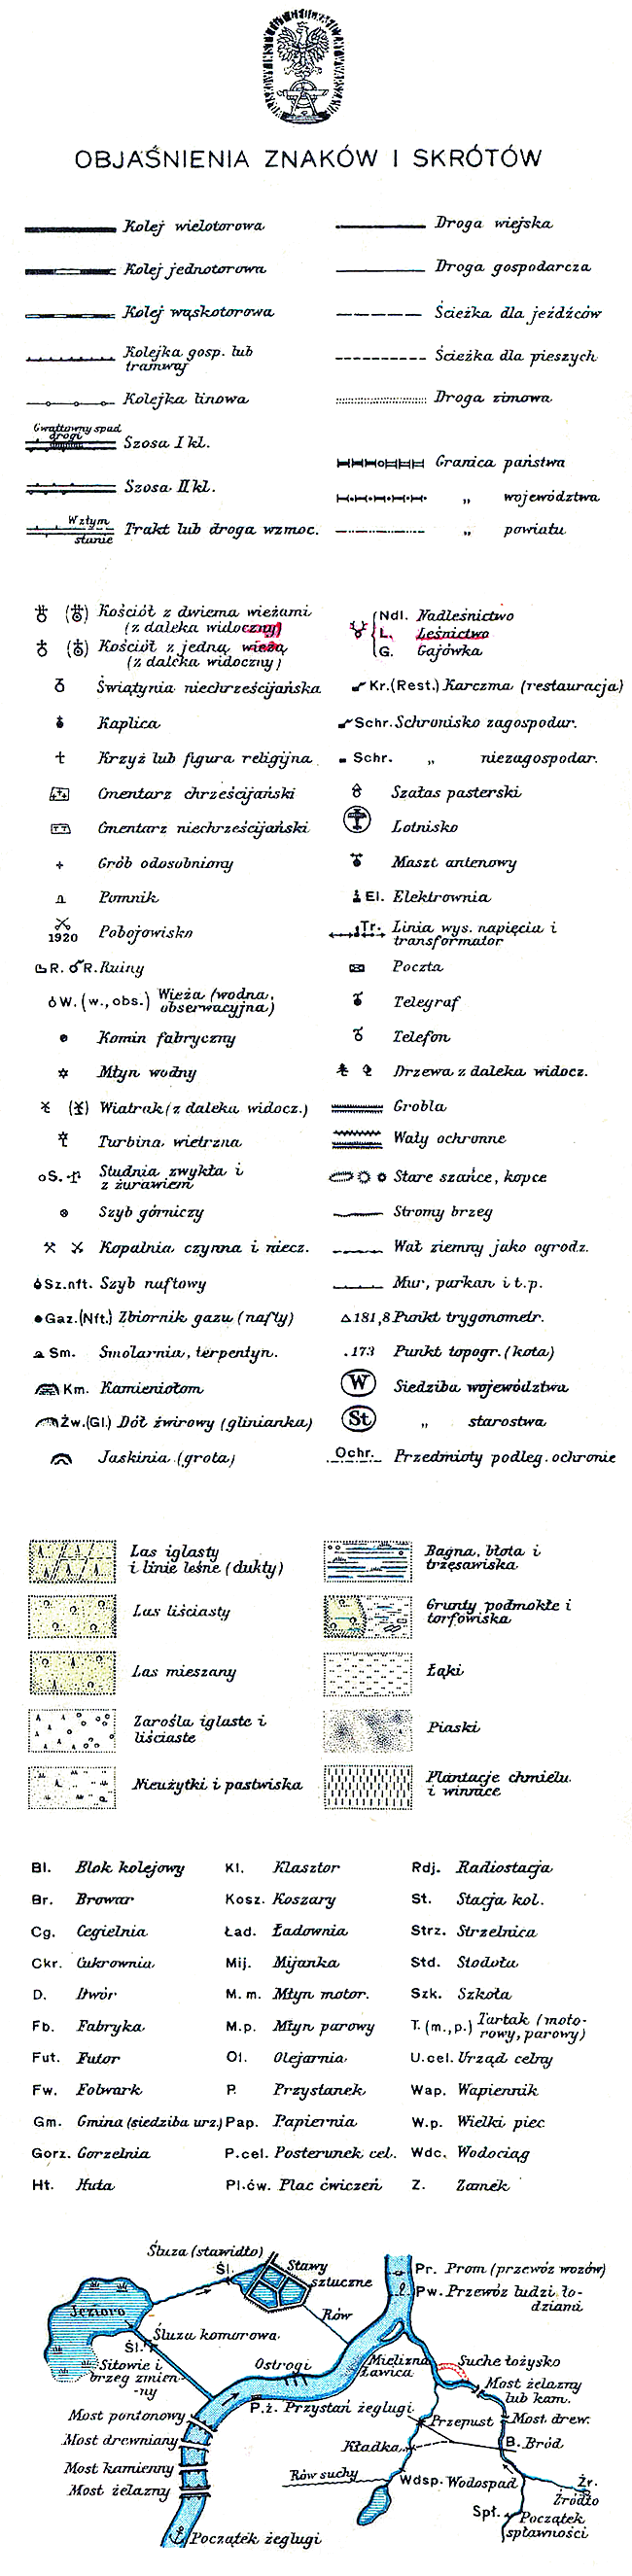 WOJSKOWY INSTYTUT GEOGRAFICZNY W WARSZAWIE
OBJAŚNIENIA ZNAKÓW I SKRÓTÓW
Kolej wielotorowa
Kolej jednotorowa
Kolej wąskotorowa
Kolejka gosp. lub
tramwaj
Kolejka linowa
Gwałtowny spad
drogi
Szosa I kl.
Szosa II kl.
Wzłym
stanie
Trakt lub droga wzmoc.
Droga wiejska
Droga gospodarcza
Ścieżka dla jeźdźców
Ścieżka dla pieszych
Droga zimowa
Granica państwa
„ województwa
„ powiatu
Kościół z dwiema wieżami
(z daleka widoczny)
Kościół z jedną wieżą
(z daleka widoczny)
Świątynia niechrześcijańska
Kaplica
Krzyż lub figura religijna
Cmentarz chrześcijański
Cmentarz niechrześcijański
Grób odosobniony
Pomnik
1920 Pobojowisko
R. R. Ruiny
W. (w., obs.) Wieża (wodna,
obserwacyjna)
Komin fabryczny
Młyn wodny
Wiatrak (z daleka widocz.)
Turbina wietrzna
S. Studnia zwykła i
z żurawiem
Szyb górniczy
Kopalnia czynna i niecz.
Sz.nft. Szyb naftowy
Gaz.(Nft.) Zbiornik gazu (nafty)
Sm. Smolarnia, terpentyn.
Km. Kamieniołom
Żw.(Gl.) Dół żwirowy (glinianka)
Jaskinia (grota)
Ndl. Nadleśnictwo
L. Leśnictwo
G. Gajówka
Kr.(Rest.) Karczma (restauracja)
Schr. Schronisko zagospodar.
Schr. „ niezagospodar.
Szałas pasterski
Lotnisko
Maszt antenowy
El. Elektrownia
Tr. Linia wys. napięcia i
transformator
Poczta
Telegraf
Telefon
Drzewa z daleka widocz.
Grobla
Wały ochronne
Stare szańce, kopce
Stromy brzeg
Wał ziemny jako ogrodz.
Mur, parkan i t.p.
181,8 Punkt trygonometr.
.173 Punkt topogr. (kota)
W Siedziba województwa
St „ starostwa
Ochr. Przedmioty podleg. ochronie
Las iglasty
i linie leśne (dukty)
Las liściasty
Las mieszany
Zarośla iglaste i
liściaste
Nieużytki i pastwiska
Bagna, błota i
trzęsawiska
Grunty podmokłe i
torfowiska
Łąki
Piaski
Plantacje chmielu
i winnice
Bl. Blok kolejowy
Br. Browar
Cg. Cegielnia
Ckr. Cukrownia
D. Dwór
Fb. Fabryka
Fut. Futor
Fw. Folwark
Gm. Gmina (siedziba urz.)
Gorz. Gorzelnia
Ht. Huta
Kl. Klasztor
Kosz. Koszary
Ład. Ładownia
Mij. Mijanka
M.m. Młyn motor.
M.p. Młyn parowy
Ol. Olejarnia
P. Przystanek
Pap. Papiernia
P.cel. Posterunek cel.
Pl.ćw. Plac ćwiczeń
Rdj. Radiostacja
St. Stacja kol.
Strz. Strzelnica
Std. Stodoła
Szk. Szkoła
T.(m.,p.) Tartak (moto-
rowy, parowy)
U.cel. Urząd celny
Wap. Wapiennik
W.p. Wielki piec
Wdc. Wodociąg
Z. Zamek
Śluza (stawidło)
Śl.
Stawy
sztuczne
Pr. Prom (przewóz wozów)
Pw. Przewóz ludzi ło-
dziami
Jezioro
Rów
Śluza komorowa
Śl.
Sitowie i
brzeg zmien-
ny
Ostrogi
Mielizna
Ławica
Suche łożysko
Most żelazny
lub kam.
P.ż. Przystań żeglugi
Most pontonowy
Przepust
Most. drew.
Most drewniany
Kładka
B. Bród
Most kamienny
Rów suchy
Wdsp. Wodospad
Źr.
Źródło
Most żelazny
Spł. Początek
spławności
Początek żeglugi